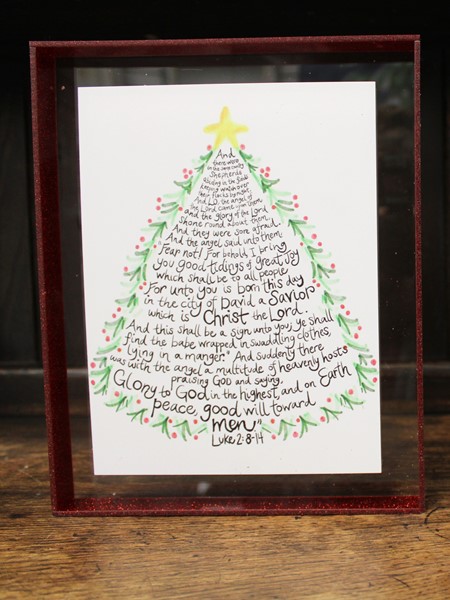 And
there were
in the same country
shepherds
abiding in the field
keeping watch over
their flocks by night.
And LO, the angel of
the Lord came upon them,
and the glory of the Lord
shone round about them.
And they were sore afraid.
And the angel said unto them:
"Fear not! For behold, I bring
you good tidings of great joy
which shall be to all people.
For unto you is born this day
in the city of David a Savior
which is Christ the Lord.
And this shall be a sign unto you; ye shall
find the babe wrapped in swaddling clothes,
lying in a manger." And suddenly there
was with the angel a multitude of heavenly hosts
praising GOD and saying,
Glory to God in the highest, and on Earth
peace, good will toward
men"
Luke 2:8-14